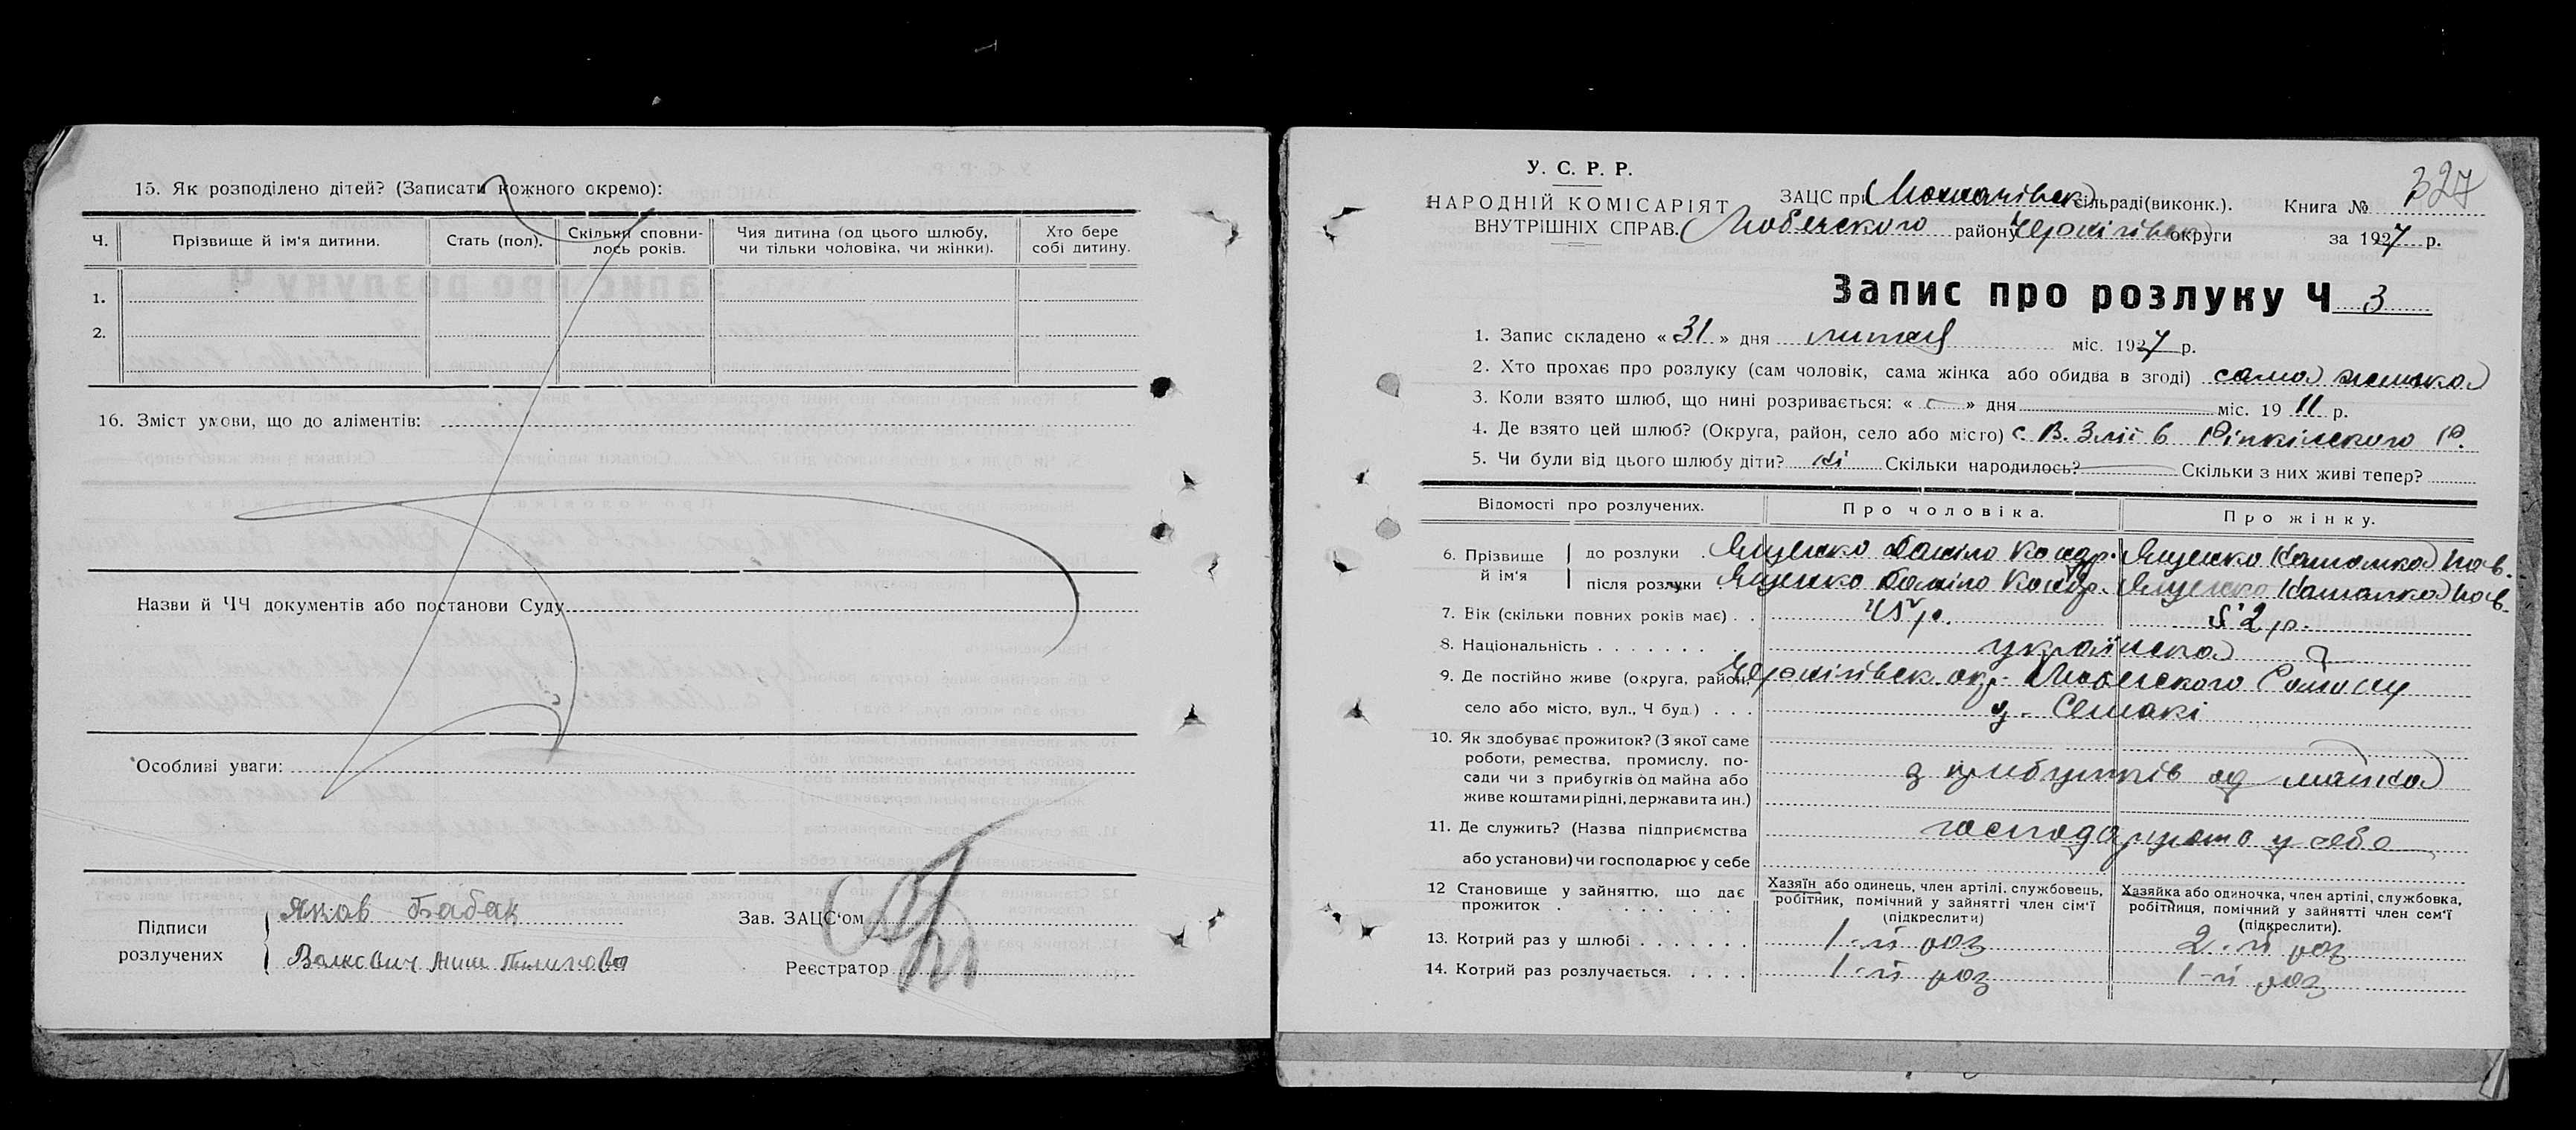 15. Як розподілено дітей? (Записати кожного окремо):
Ч. Прізвище й ім'я дитини. Стать (пол). Скільки сповни-лось років. Чия дитина (од цього шлюбу, чи тільки чоловіка, чи жінки). Хто бере собі дитину.
1.
2.
16. Зміст умови, що до аліментів:
Назви й ЧЧ документів або постанови Суду
Особливі уваги:
Підписи розлучених
Яков Бабак
Волкович
Зав. ЗАЦС'ом
Реєстратор
У. С. Р. Р.
НАРОДНІЙ КОМІСАРІЯТ
ВНУТРІШНІХ СПРАВ.
ЗАЦС при сільраді(виконк.).
Любечского району Чернігівск округи
Книга № 327
за 1927 р.
Запис про розлуку Ч 3
1. Запис складено «31» дня лютая міс. 1927 р.
2. Хто прохає про розлуку (сам чоловік, сама жінка або обидва в згоді) сама жінка
3. Коли взято шлюб, що нині розривається: « — » дня міс. 19 11 р.
4. Де взято цей шлюб? (Округа, район, село або місто) с. В. Зліїв Ріпкінского Р.
5. Чи були від цього шлюбу діти? ні Скільки народилось? — Скільки з них живі тепер?
Відомості про розлучених. Про чоловіка. Про жінку.
6. Прізвище й ім'я
до розлуки . Ященко Даніло Кондр. Ященко Наталка
після розлуки . Ященко Даніло Кондр. Ященко Наталка
7. Вік (скільки повних років має) . . 45 р. 52 р.
8. Національність . . . . . . . українска
9. Де постійно живе (округа, район, Чернігівск. окр. Любечского
село або місто, вул., Ч буд.) . . . Семакі
10. Як здобуває прожиток? (З якої саме
роботи, ремества, промислу, по-
сади чи з прибутків од майна або з прибутків од майна
живе коштами рідні, держави та ин.)
11. Де служить? (Назва підприємства господарують у себе
або установи) чи господарює у себе
12 Становище у зайняттю, що дає
прожиток . . . . . . . .
Хазяїн або одинець, член артілі, службовець,
робітник, помічний у зайнятті член сім'ї
(підкреслити)
Хазяйка або одиночка, член артілі, службовка,
робітниця, помічний у зайнятті член сем'ї
(підкреслити).
13. Котрий раз у шлюбі . . . . . . . 1-й раз 2-й раз
14. Котрий раз розлучається. . . . . 1-й раз 1-й раз